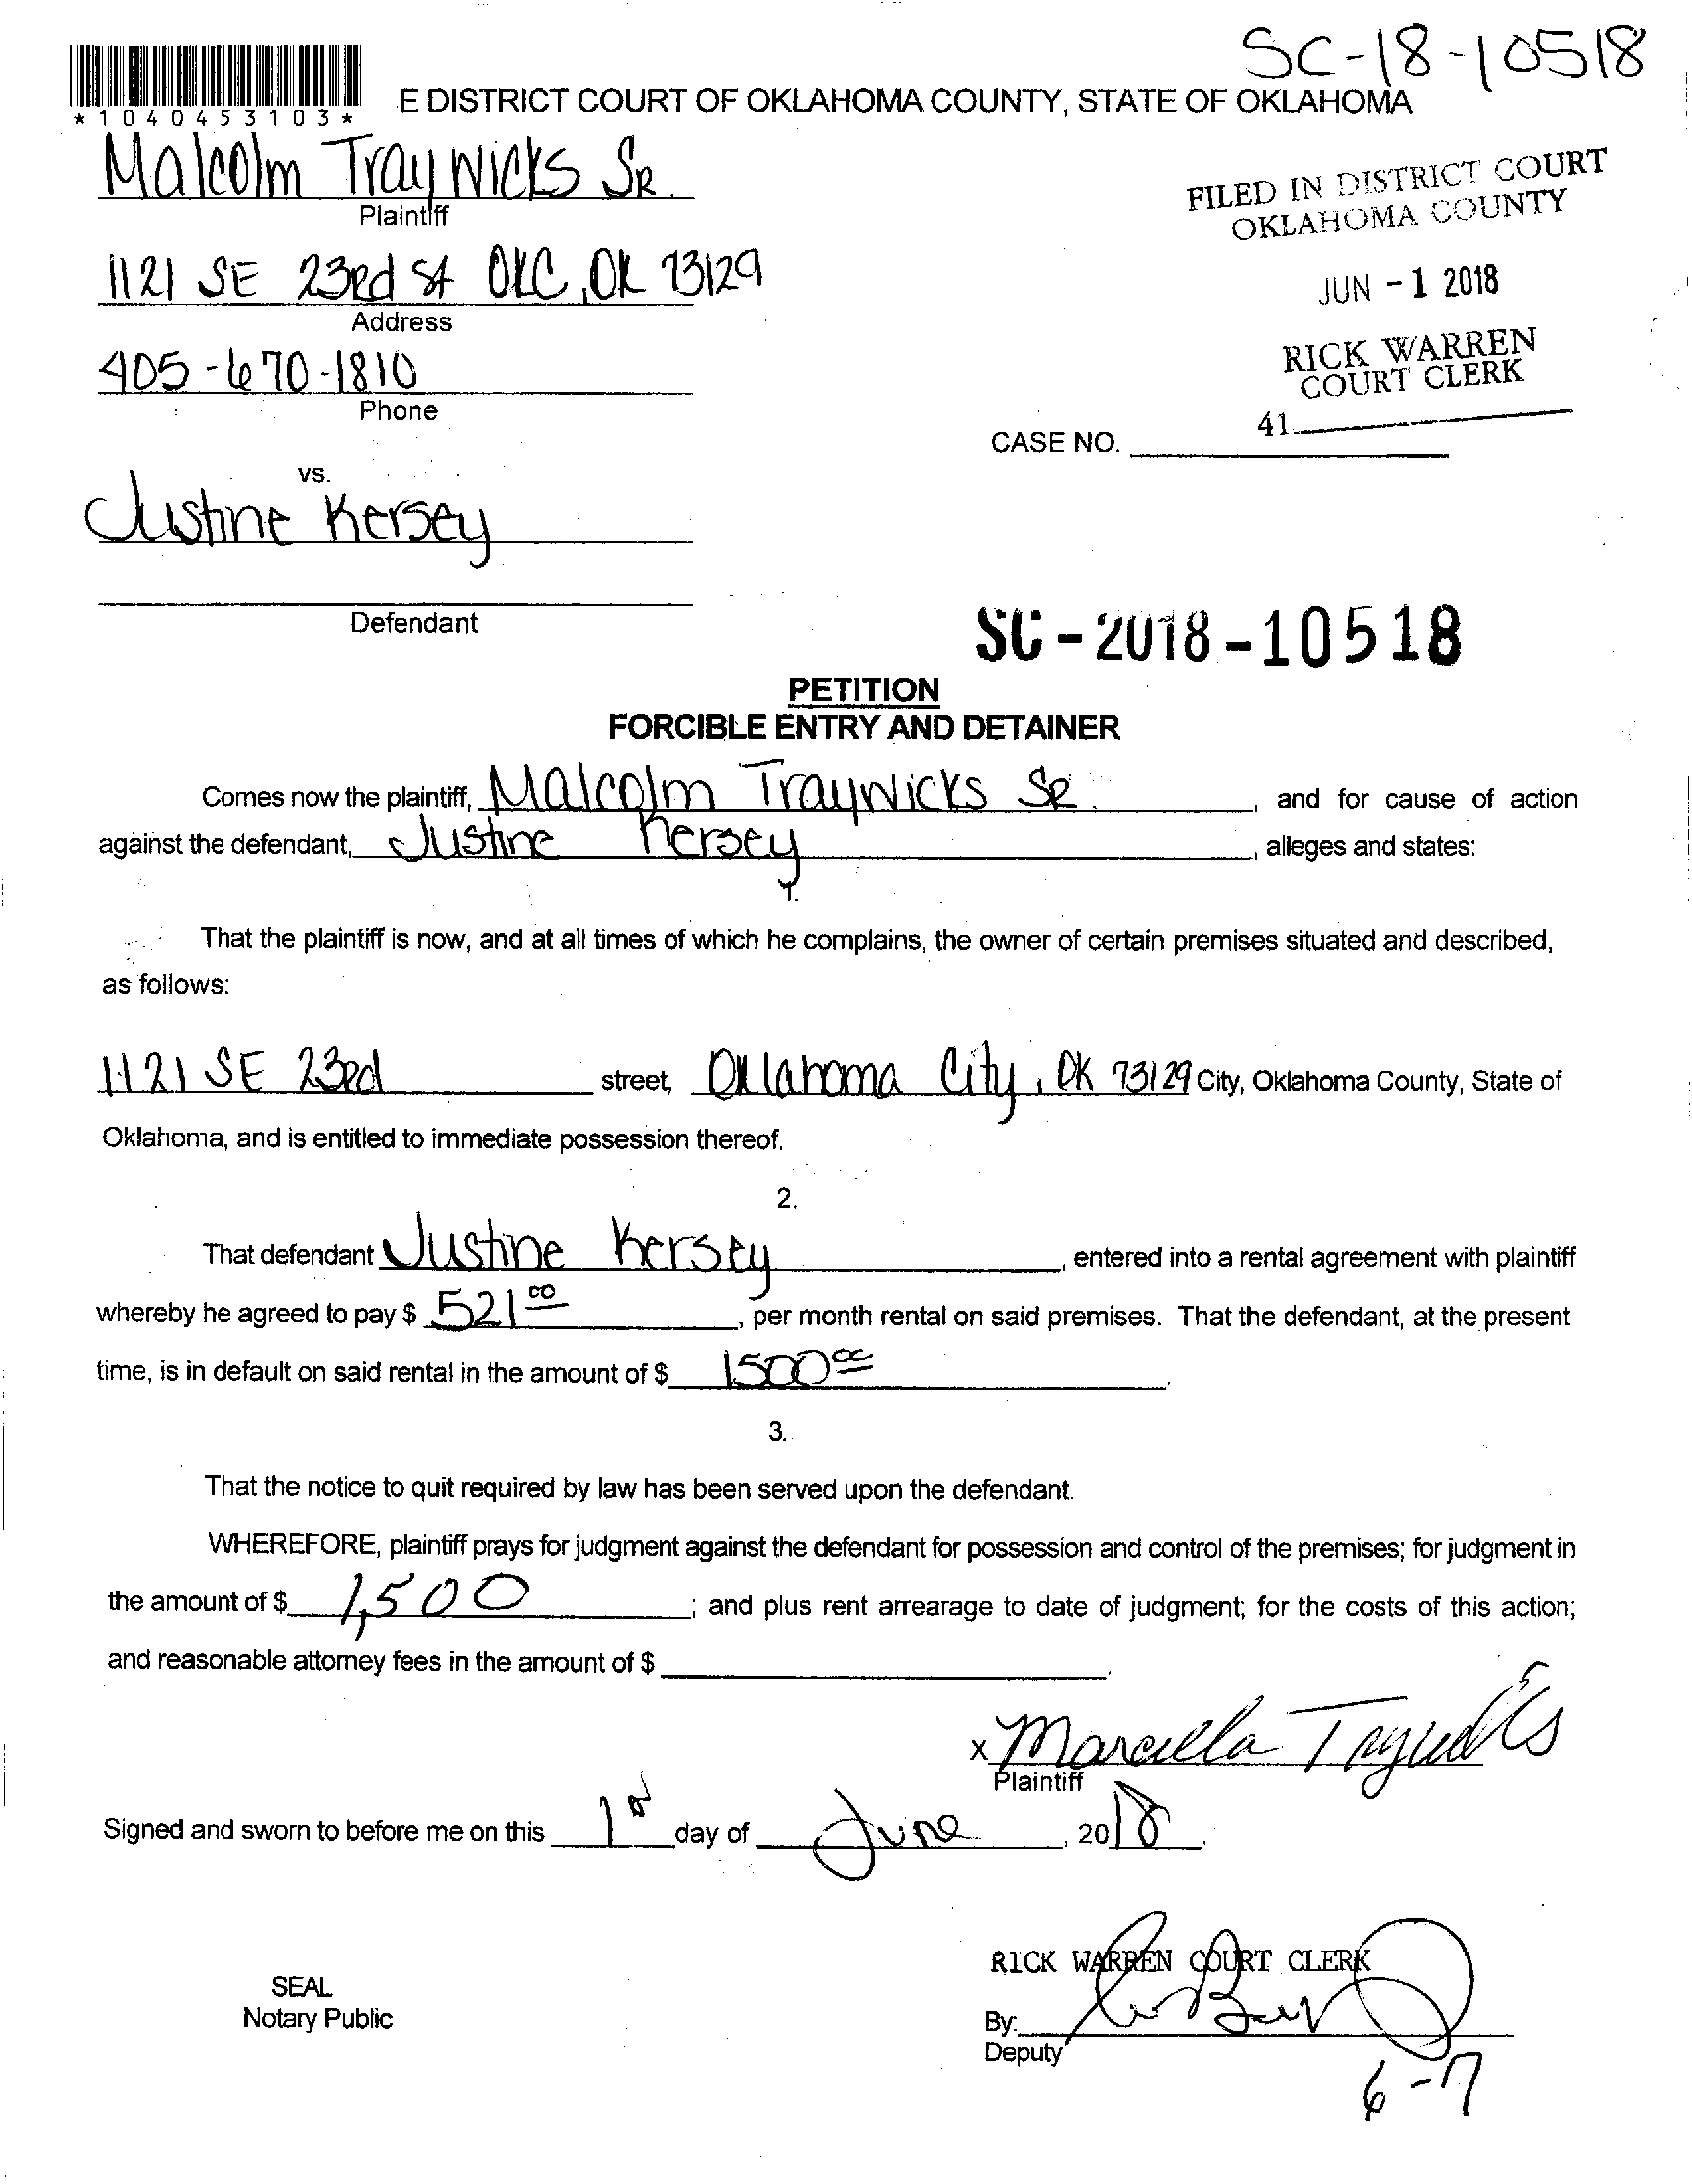 SC-18-10518
*1040453103*
E DISTRICT COURT OF OKLAHOMA COUNTY, STATE OF OKLAHOMA
Malcolm Traywicks SR.
Plaintiff
FILED IN DISTRICT COURT
OKLAHOMA COUNTY
1121 SE 23rd St OKC, OK 73129
Address
JUN - 1 2018
405-670-1810
Phone
RICK WARREN
COURT CLERK
41
CASE NO.
vs.
Justine Kersey
Defendant
SC-2018-10518
PETITION
FORCIBLE ENTRY AND DETAINER
Comes now the plaintiff, Malcolm Traywicks SR. , and for cause of action
against the defendant, Justine Kersey , alleges and states:
1.
That the plaintiff is now, and at all times of which he complains, the owner of certain premises situated and described,
as follows:
1121 SE 23rd street, Oklahoma City, OK 73129 City, Oklahoma County, State of
Oklahoma, and is entitled to immediate possession thereof.
2.
That defendant Justine Kersey , entered into a rental agreement with plaintiff
whereby he agreed to pay $ 521 00 , per month rental on said premises. That the defendant, at the present
time, is in default on said rental in the amount of $ 1500 00 .
3.
That the notice to quit required by law has been served upon the defendant.
WHEREFORE, plaintiff prays for judgment against the defendant for possession and control of the premises; for judgment in
the amount of $ 1,500 ; and plus rent arrearage to date of judgment; for the costs of this action;
and reasonable attorney fees in the amount of $ .
x Marcella
Plaintiff
Signed and sworn to before me on this 1st day of June , 2018.
RICK WARREN COURT CLERK
SEAL
Notary Public
By:
Deputy
6-7